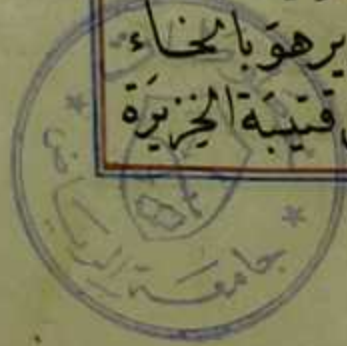 ير هوَ بالخاء
قتيبَة الخزيرَة
جامعة الرياض